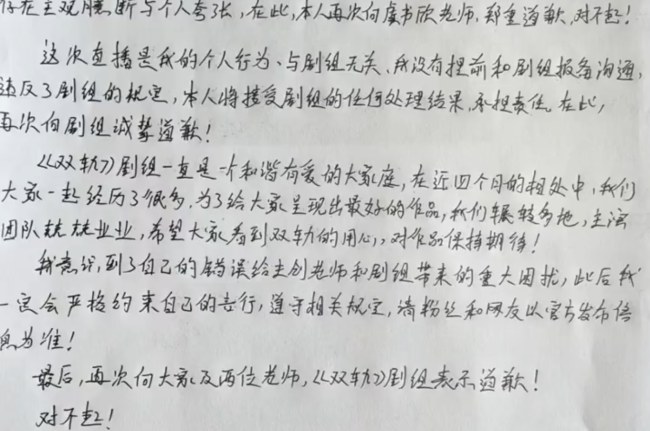 存在主观臆断与个人夸张,在此,本人再次向虞书欣老师,郑重道歉,对不起!
这次直播是我的个人行为、与剧组无关、我没有提前和剧组报备沟通,
违反了剧组的规定,本人将接受剧组的任何处理结果,承担责任。在此,
再次向剧组诚挚道歉!
《双轨》剧组一直是一个和谐有爱的大家庭,在近四个月的相处中,我们
大家一起经历了很多,为了给大家呈现出最好的作品,我们辗转多地,主演
团队兢兢业业,希望大家看到双轨的用心,对作品保持期待!
我意识到了自己的错误给主创老师和剧组带来的重大困扰,此后我
一定会严格约束自己的言行,遵守相关规定,请粉丝和网友以官方发布信
息为准!
最后,再次向大家及两位老师,《双轨》剧组表示道歉!
对不起!